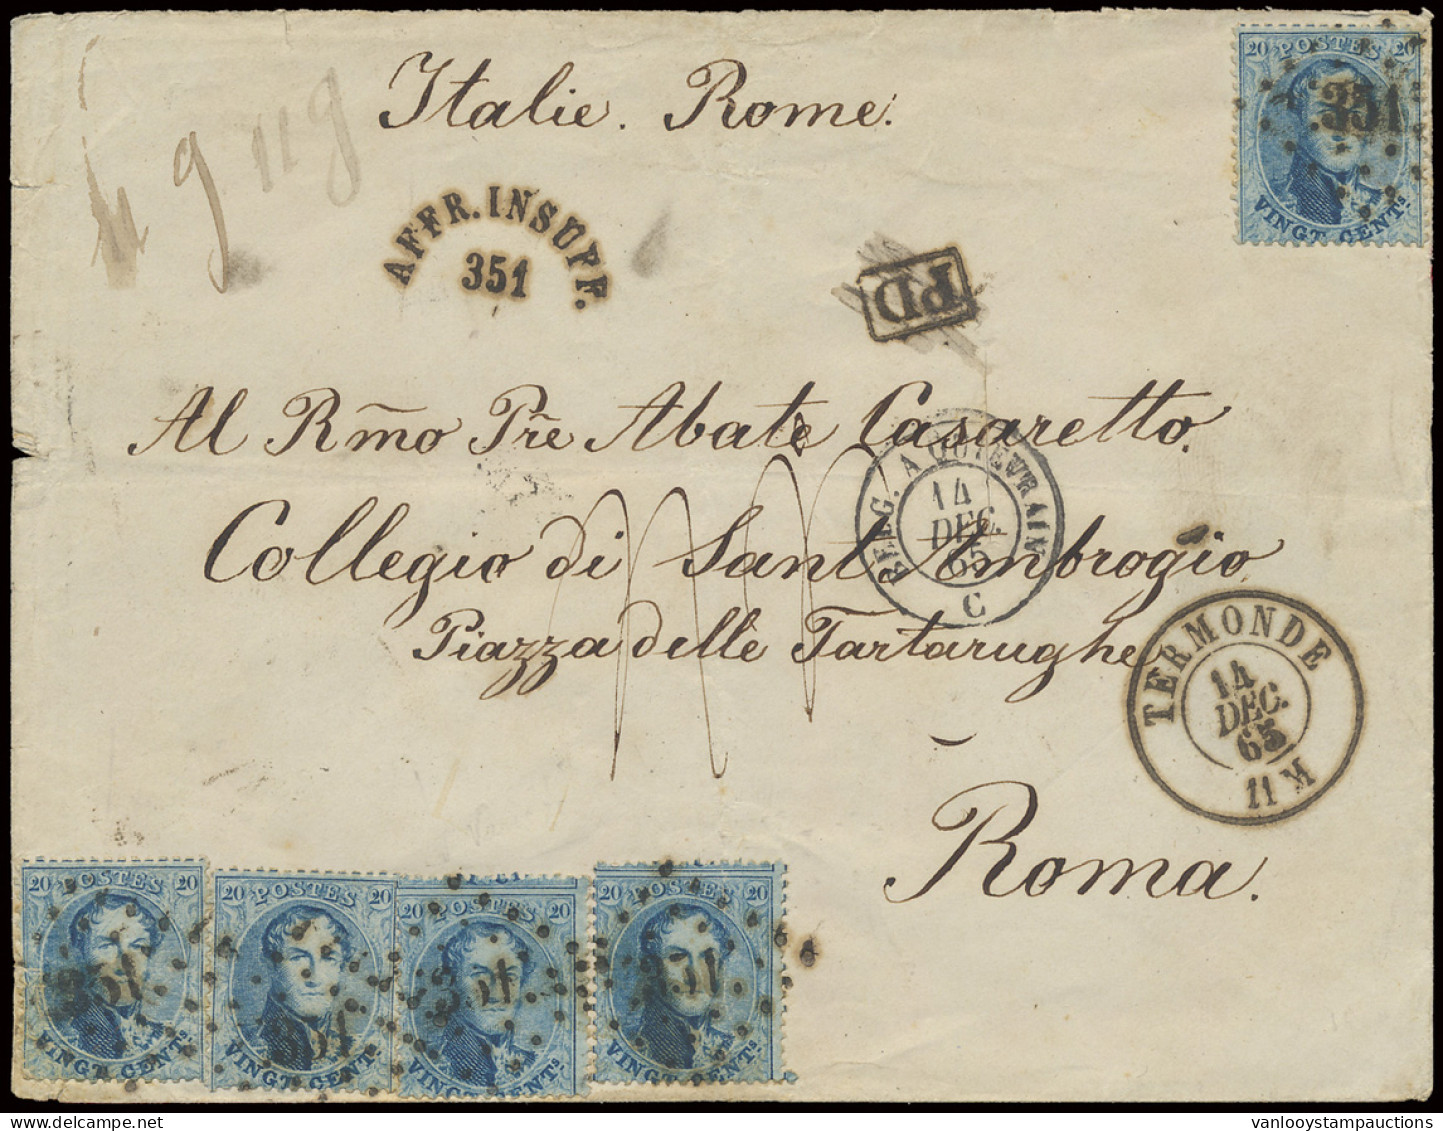 Italie. Rome.
20 POSTES 20
351
VINGT CENTS
4 g 11 g
AFFR. INSUFF.
351
PD
Al Rm̃o Pr̃e Abate Casaretto.
BELG. A QUIEVRAIN
14
DEC.
65
C
Collegio di Sant Ambrogio
Piazza delle Tartarughe
TERMONDE
14
DEC.
65
11 M
Roma.
20 POSTES 20
351
VINGT CENTS
20 POSTES 20
351
VINGT CENTS
20 POSTES 20
351
VINGT CENTS
20 POSTES 20
351
VINGT CENTS
delcampe.net
vanlooystampauctions